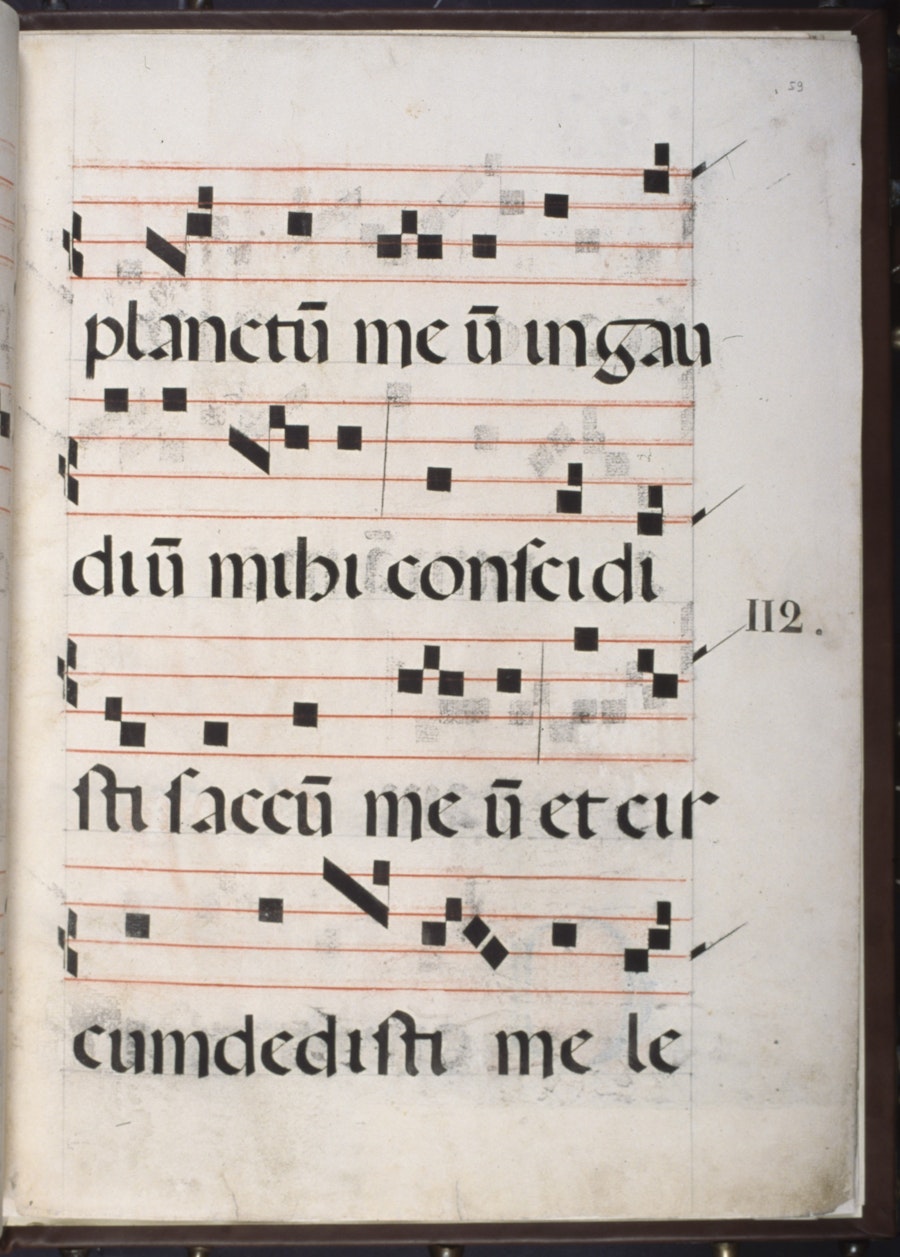 59
planctū me ū in gau
diū mihi conſcidi
112.
ſti ſaccū me ū et cir
cumdediſti me le